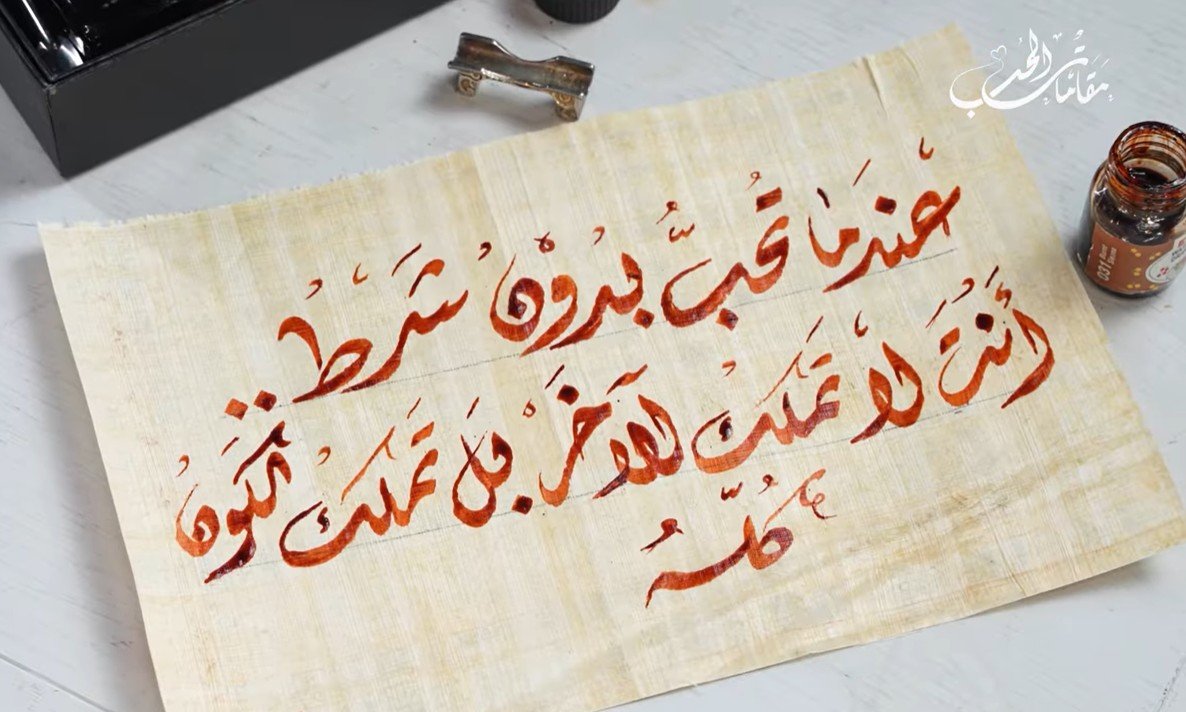 مقامات الحب
عندَما تُحُبُّ بدُوْنْ شَرْطْ..
أَنتَ لاْ تَملكْ الآخَرْ بلَ تَملكْ الكَونْ
كُلّهُ
031